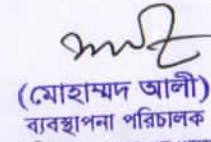 (মোহাম্মদ আলী)
ব্যবস্থাপনা পরিচালক